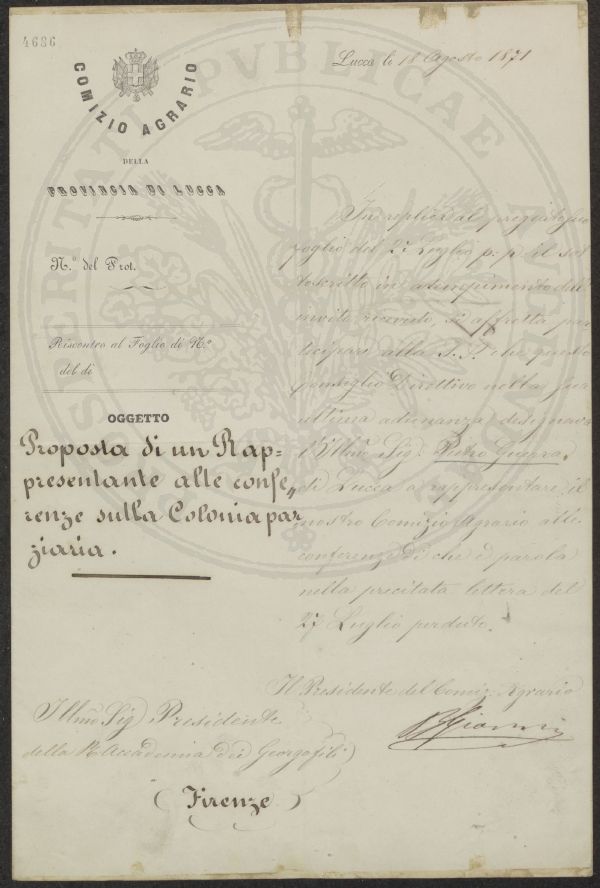 4686
COMIZIO AGRARIO
DELLA
PROVINCIA DI LUCCA
N.º del Prot.
Riscontro al Foglio di N.º
del dì
OGGETTO
Proposta di un Rap=
presentante alle confe„
renze sulla Colonia par
ziaria.
Lucca li 18 Agosto 1871
In replica al pregiatissimo
foglio del 27 Luglio p: p: il sot
toscritto in adempimento dell'
invito ricevuto, si affretta par
tecipare alla S. V. che questo
Consiglio Direttivo nella sua
ultima adunanza designava
l'Illmo Sig. Pietro Guerra
di Lucca a rappresentare il
nostro Comizio Agrario alle
conferenze di che è parola
nella precitata lettera del
27 Luglio perduto.
Il Presidente del Comiz. Agrario
Illmo Sig. Presidente
della R. Accademia dei Georgofili
(Firenze)
PROSPERITATI PVBLICAE AVGENDAE